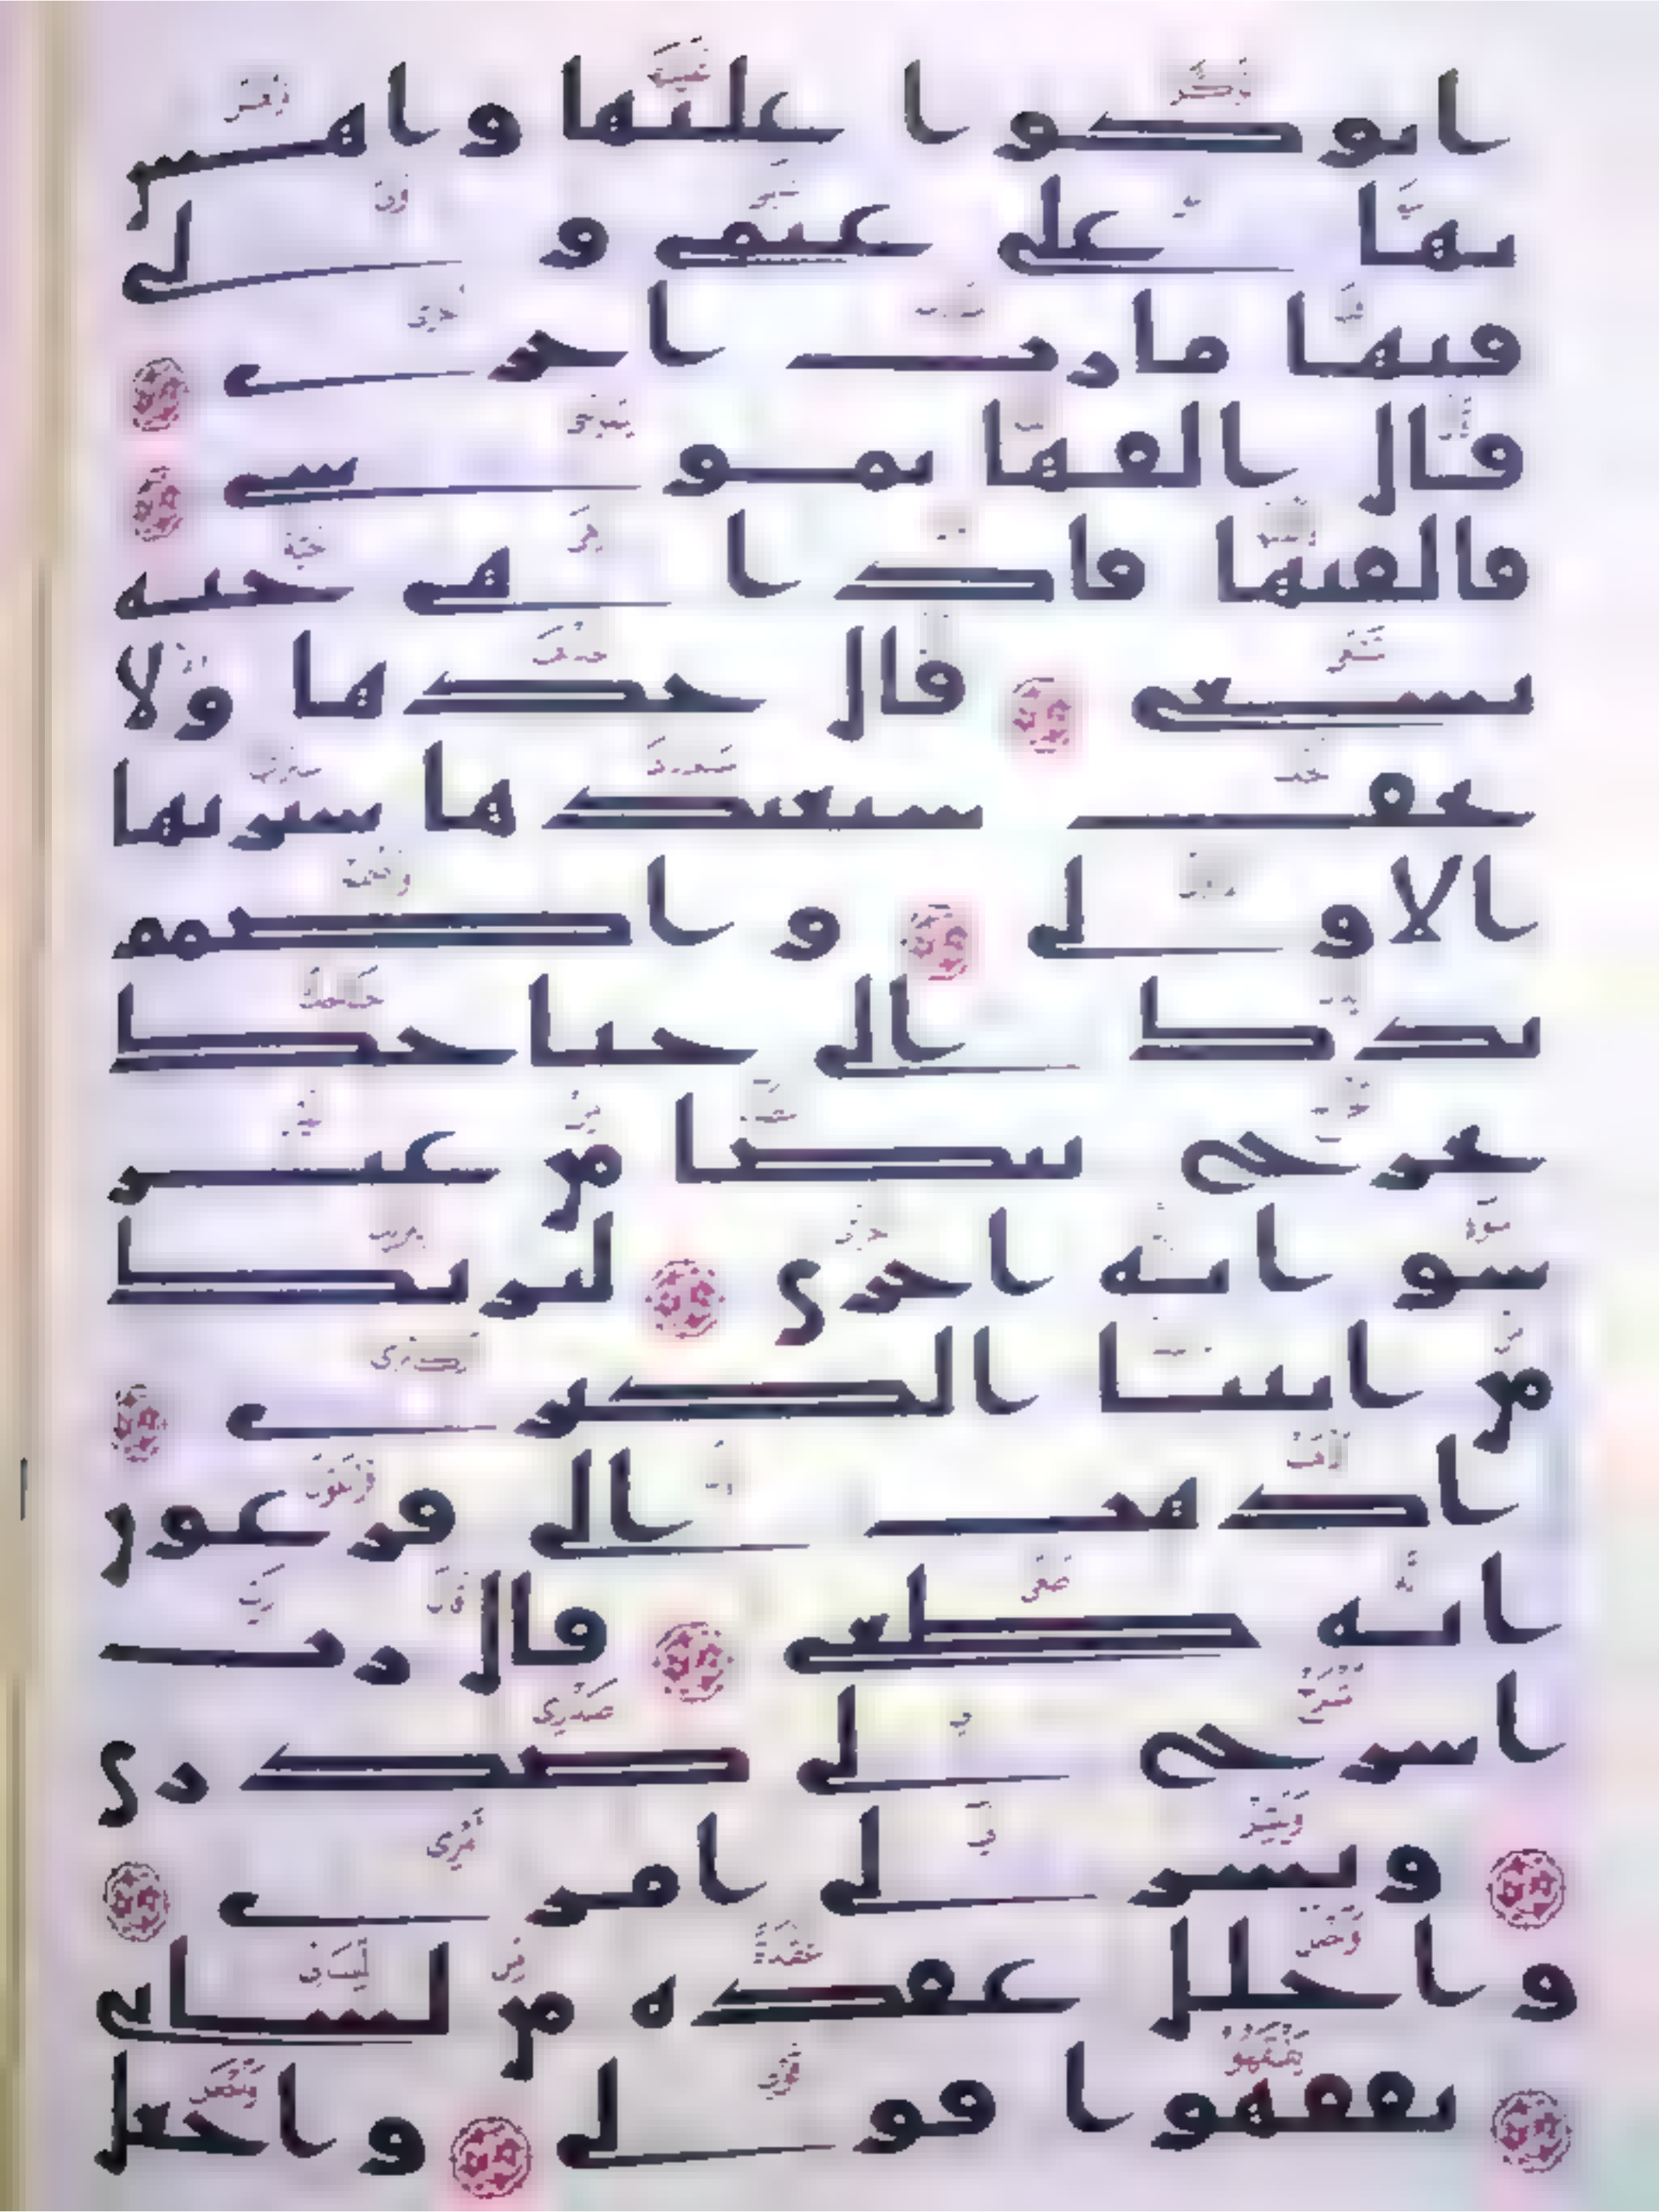 اتوكوا عليها واهش
بها على غنمى ولى
فيها مارب اخرى
قال القها يموسى
فالقيها فاذا هى حية
تسعى قال خذها ولا
تخف سنعيدها سيرتها
الاولى واضمم
يدك الى جناحك
تخرج بيضا من غير
سو اية اخرى لنريك
من ايتنا الكبرى
اذهب الى فرعون
انه طغى قال رب
اشرح لى صدرى
ويسر لى امرى
واحلل عقدة من لسانى
يفقهوا قولى واجعل